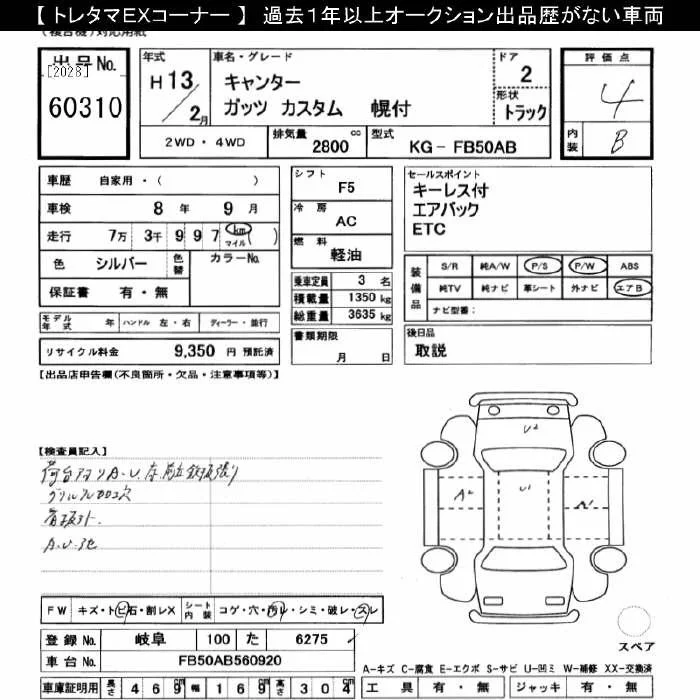 【 トレタマEXコーナー 】 過去1年以上オークション出品歴がない車両
(複合機)対応用紙
出品No. [2028] 60310
年式 H 13 / 2月
車名・グレード
キャンター
ガッツ カスタム 幌付
ドア 2
形状 トラック
評価点 4
内装 B
2WD・4WD
排気量 2800 cc
型式 KG- FB50AB
車歴 自家用・( )
車検 8 年 9 月
走行 7万 3千 9 9 7 km マイル ( )
色 シルバー 色替 カラーNo.
保証書 有・無
モデル年式 年 ハンドル 左・右 ディーラー・並行
リサイクル料金 9,350 円 預託済
シフト F5
冷房 AC
燃料 軽油
乗車定員 3 名
積載量 1350 kg
総重量 3635 kg
書類期限
月 日
セールスポイント
キーレス付
エアバック
ETC
装備品
S/R 純A/W P/S P/W ABS
純TV 純ナビ 革シート 外ナビ エアB
ナビ型番:
後日品
取説
【出品店申告欄(不良箇所・欠品・注意事項等)】
【検査員記入】
A.U.
A.U
U2
A2
U1
FW キズ・トビ石・割レX
シート内装 コゲ・穴・汚レ・シミ・破レ・スレ
登録No. 岐阜 100 た 6275
車台No. FB50AB560920
スペア
A-キズ C-腐食 E-エクボ S-サビ U-凹ミ W-補修 XX-交換済
車庫証明用 長さ 4 6 9 cm 幅 1 6 9 cm 高さ 3 0 4 cm
工具 有・無 ジャッキ 有・無